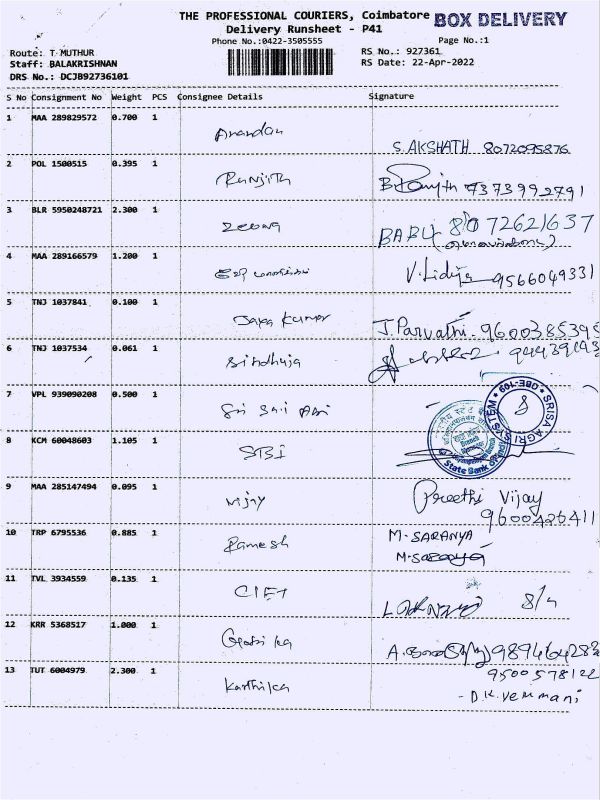 THE PROFESSIONAL COURIERS, Coimbatore BOX DELIVERY
Delivery Runsheet - P41
Phone No.:0422-3505555 Page No.:1
Route: T MUTHUR RS No.: 927361
Staff: BALAKRISHNAN RS Date: 22-Apr-2022
DRS No.: DCJB92736101
S No Consignment No Weight PCS Consignee Details Signature
1 MAA 289829572 0.700 1 Anandan
S. AKSHATH 8072095876
2 POL 1500515 0.395 1 Runjith 7373992791
3 BLR 5950248721 2.300 1 BABU 8072621637
4 MAA 289166579 1.200 1 V. Lidiya 9566049331
5 TNJ 1037841 0.100 1 Jaya Kumar J. Parvathi. 9600385395
6 TNJ 1037534 0.061 1 Sindhuja
7 VPL 939090208 0.500 1 Sri Sai
SRISA AGRI SYSTEM * OBE-109 *
8 KCM 60048603 1.105 1 SBI
State Bank of India
9 MAA 285147494 0.095 1 Vijay Preethi Vijay
9600426411
10 TRP 6795536 0.885 1 Ramesh M. SARANYA
M. Saranya
11 TVL 3934559 0.135 1 CIET
12 KRR 5368517 1.000 1 A.
13 TUT 6004979 2.300 1 Karthika 9500578122